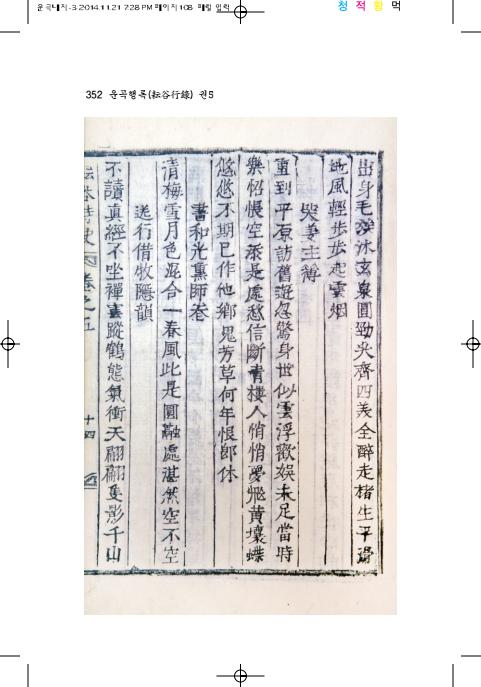 운곡내지-3 2014.11.21 7:28 PM 페이지108
청 적 황 먹
352 운곡행록(耘谷行錄) 권5
出身毛穎沐玄泉圓勁尖齊四美全醉走楮生平滑
地風輕步步起雲烟
哭姜主簿
重到平原訪舊遊忽驚身世似雲浮歡娛未足當時
樂怊悵空添是處愁信斷靑樓人悄悄夢飛黃壤蝶
悠悠不期已作他鄕鬼芳草何年恨卽休
書和光熏師卷
淸梅雪月色混合一春風此是圓融處湛然空不空
送行借牧隱韻
不讀眞經不坐禪雲蹤鶴態氣衝天翩翩隻影千山
耘谷詩史 卷之五 十四